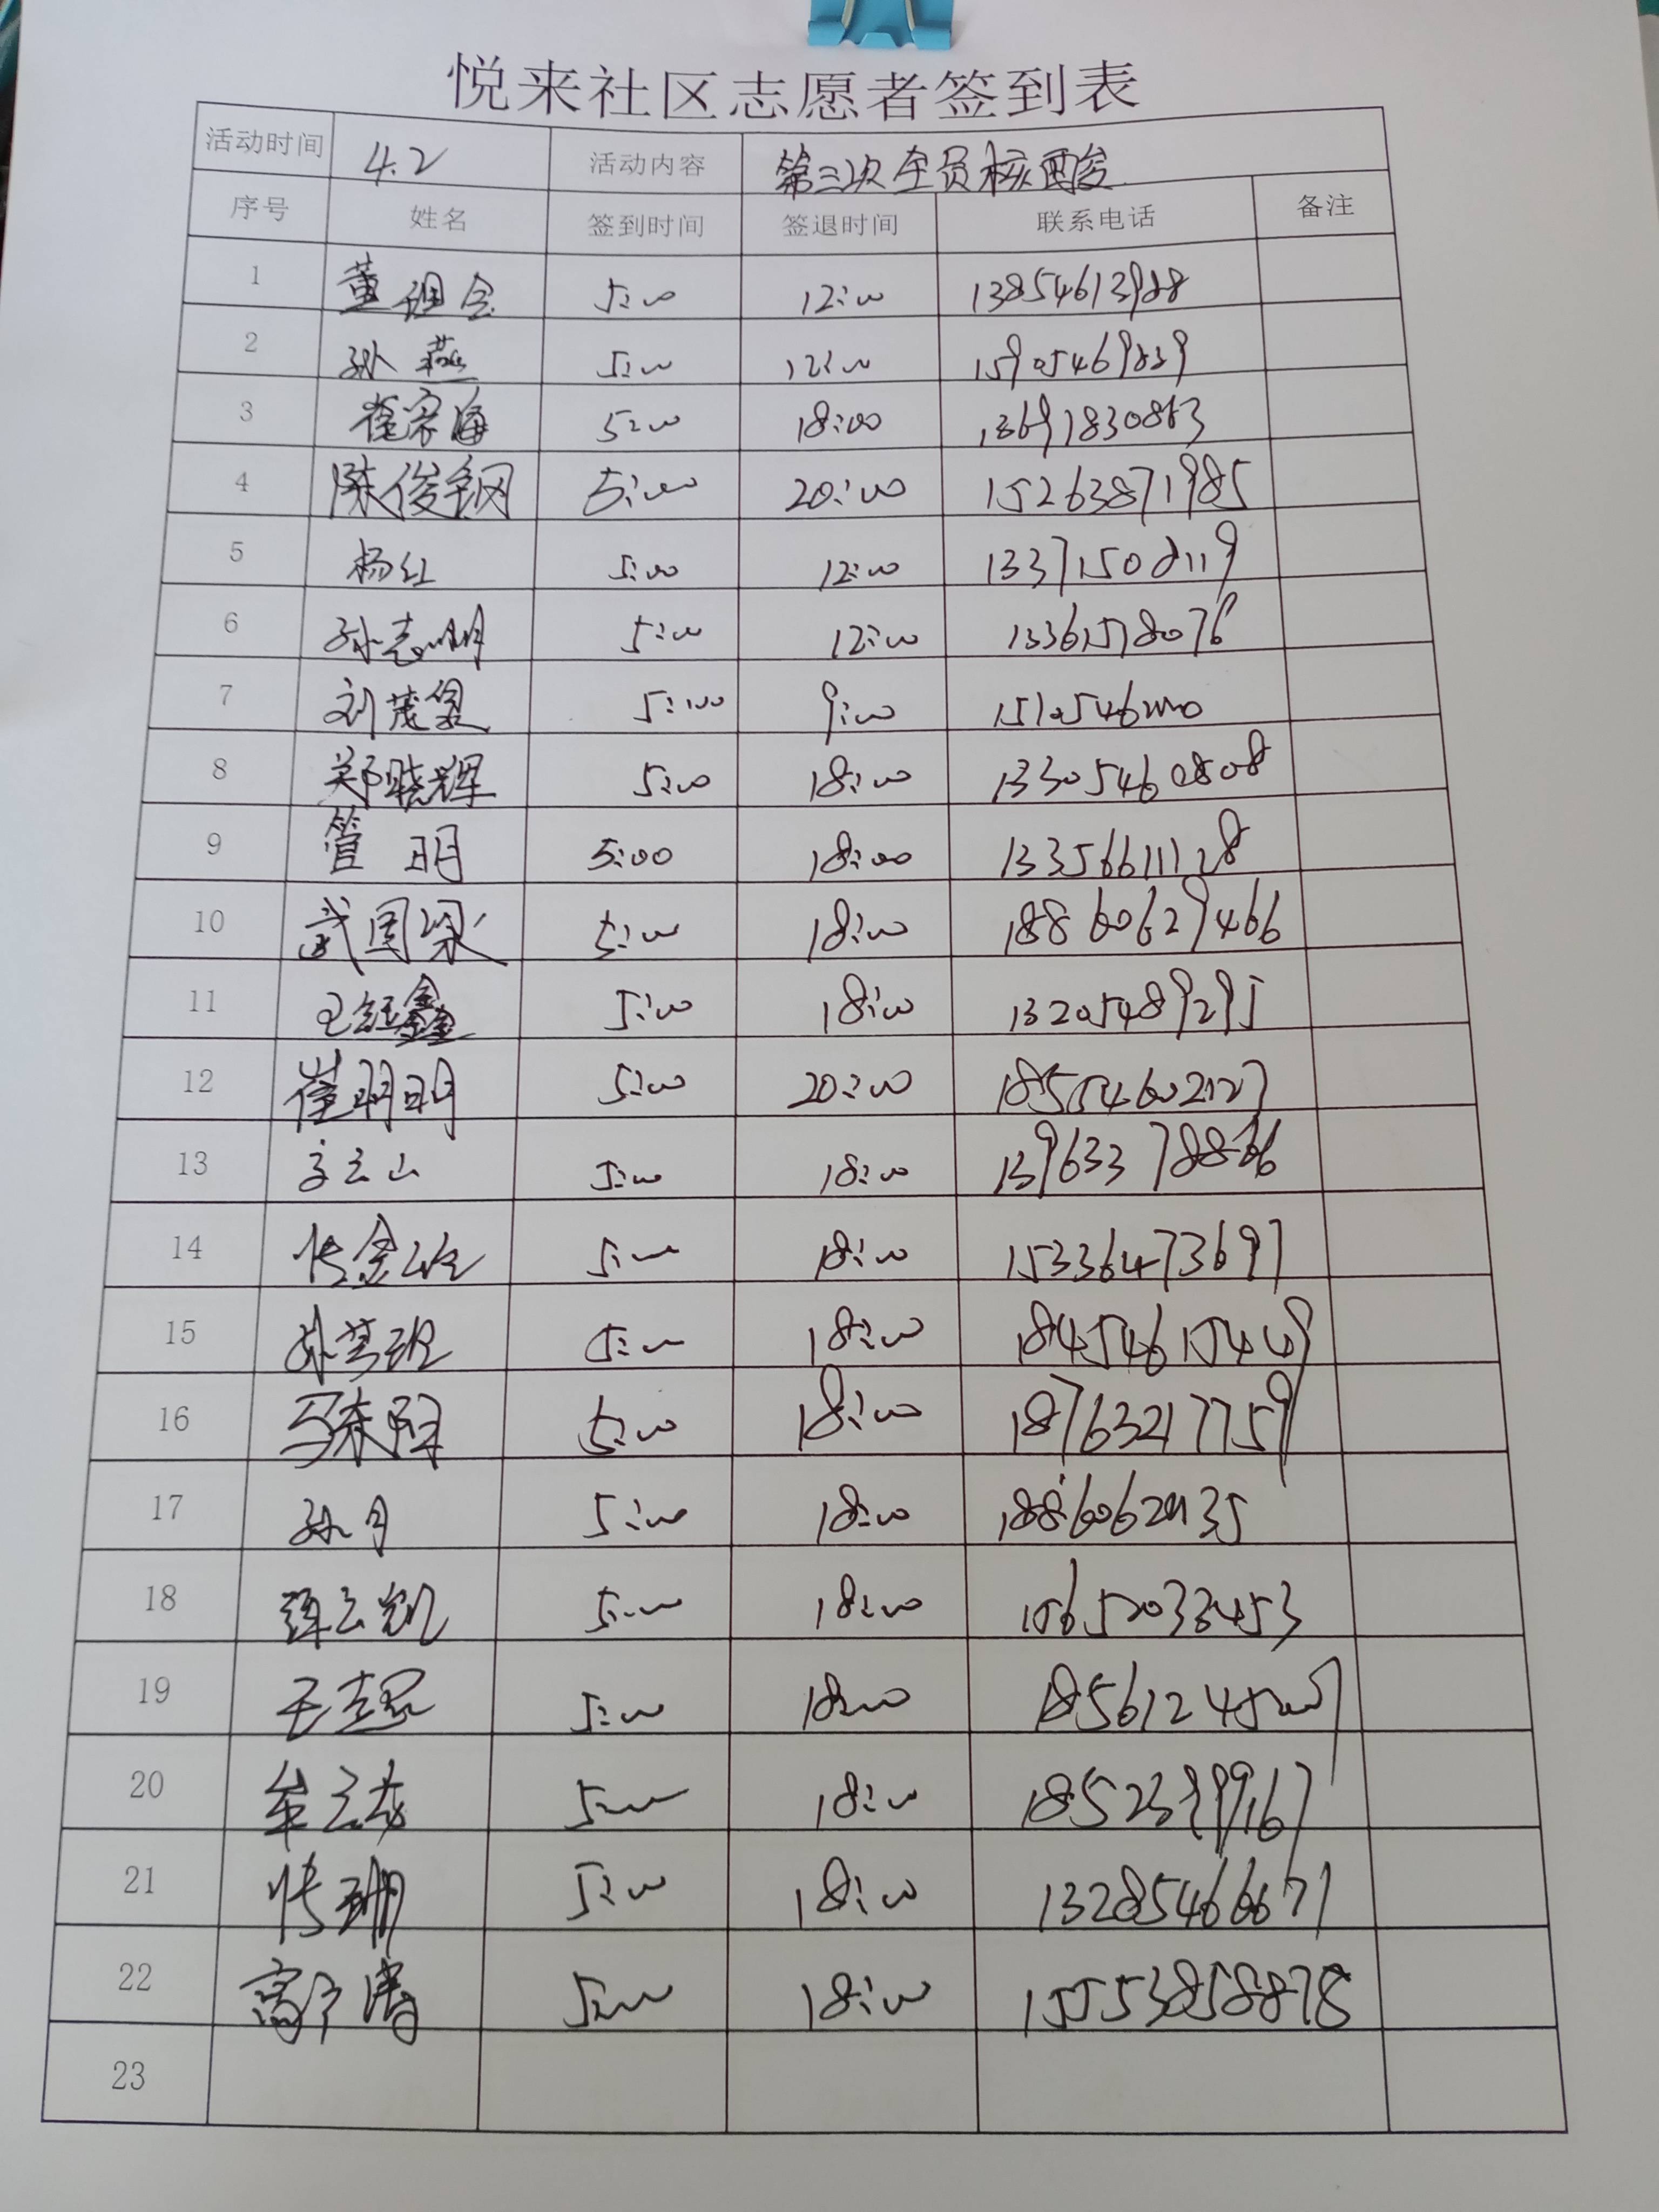 悦来社区志愿者签到表
活动时间 4.2 活动内容 第三次全员核酸
序号 姓名 签到时间 签退时间 联系电话 备注
1 董 5:00 12:00 13854613988
2 孙燕 5:00 12:00 15905469839
3 崔家海 5:00 18:00 13691830863
4 陈俊钢 5:00 20:00 15263871985
5 杨红 5:00 12:00 13371508119
6 孙志明 5:00 12:00 13361578076
7 刘茂 5:00 9:00
8 郑晓辉 5:00 18:00 13305460808
9 管明 5:00 18:00 13356611128
10 武国梁 5:00 18:00 18860629466
11 王钰鑫 5:00 18:00 13205489295
12 崔明明 5:00 20:00 18554602127
13 云山 5:00 18:00
14 张金 5:00 18:00 15336473697
15 孙 5:00 18:00 18454615449
16 马 5:00 18:00 18763217759
17 孙月 5:00 18:00
18 云凯 5:00 18:00 15652033453
19 王志 5:00 18:00
20 牟云龙 5:00 18:00 18523999167
21 张珊 5:00 18:00 13285466671
22 高广涛 5:00 18:00 15553858878
23